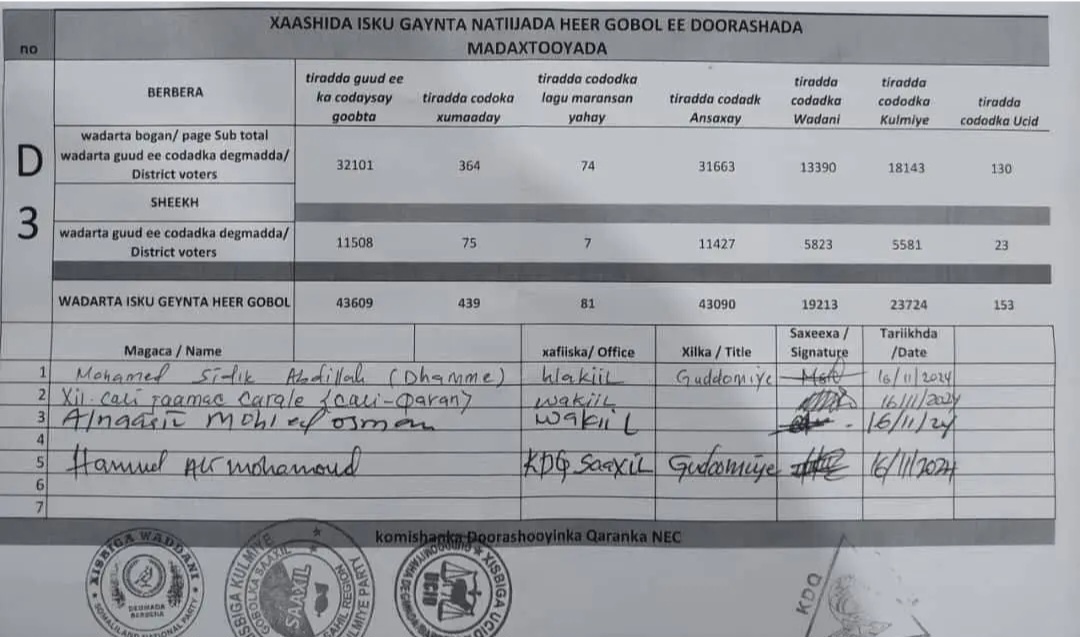 XAASHIDA ISKU GAYNTA NATIIJADA HEER GOBOL EE DOORASHADA
MADAXTOOYADA
no
BERBERA
tiradda guud ee
ka codaysay
goobta
tiradda codoka
xumaaday
tiradda cododka
lagu maransan
yahay
tiradda codadk
Ansaxay
tiradda
codadka
Wadani
tiradda
cododka
Kulmiye
tiradda
cododka Ucid
D
3
wadarta bogan/ page Sub total
wadarta guud ee codadka degmadda/
District voters
32101 364 74 31663 13390 18143 130
SHEEKH
wadarta guud ee codadka degmadda/
District voters
11508 75 7 11427 5823 5581 23
WADARTA ISKU GEYNTA HEER GOBOL 43609 439 81 43090 19213 23724 153
Magaca / Name
xafiiska/ Office
Xilka / Title
Saxeexa /
Signature
Tariikhda
/Date
1 Mohamed Sidik Abdillah (Dhamme) Wakiil Guddomiye 16/11/2024
2 Xil. cali raamac carale (cali-Qaran) wakiil 16/11/2024
3 osman wakiil 16/11/24
4
5 Ali mohamoud KDG Saaxil Gudoomiye 16/11/2024
6
7
komishanka Doorashooyinka Qaranka NEC
XISBIGA WADDANI
DEGMADA
BERBERA
SOMALILAND NATIONAL PARTY
XISBIGA KULMIYE
GOBOLKA SAAXIL
SAAXIL
SAHIL REGION
KULMIYE PARTY
XISBIGA UCID
UCID
KDQ